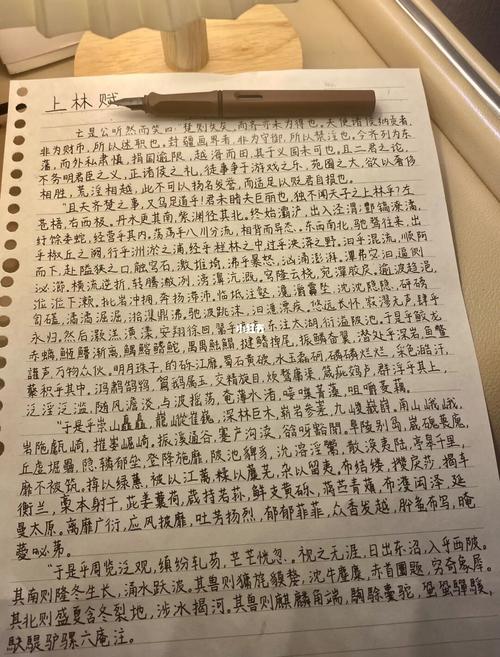 上林赋
亡是公听然而笑曰：楚则失矣，而齐亦未为得也。夫使诸侯纳贡者，
非为财币，所以述职也。封疆画界者，非为守御，所以禁淫也。今齐列为东
藩，而外私肃慎，捐国逾限，越海而田，其于义固未可也，且二君之论，
不务明君臣之义，正诸侯之礼，徒事争于游戏之乐，苑囿之大，欲以奢侈
相胜，荒淫相越，此不可以扬名发誉，而适足以贬君自损也。
"且夫齐楚之事，又乌足道乎！君未睹夫巨丽也，独不闻天子之上林乎？左
苍梧，右西极。丹水更其南，紫渊径其北。终始灞浐，出入泾渭；酆镐潦潏，
纡馀委蛇，经营乎其内，荡荡乎八川分流，相背而异态。东西南北，驰骛往来，出
乎椒丘之阙，行乎洲淤之浦，经乎桂林之中，过乎泱漭之野，汩乎混流，顺阿
而下，赴隘狭之口，触穹石，激堆埼，沸乎暴怒，汹涌澎湃，
泌瀄，横流逆折，转腾潎洌，滂濞沆溉。穹隆云桡，宛潬胶戾，逾波趋浥，
涖涖下濑，批岩冲拥，奔扬滞沛，临坻注壑，瀺灂霣坠，沈沈隐隐，砰磅
訇礚，潏潏淈淈，湁潗鼎沸，驰波跳沫，汩漂疾，悠远长怀，寂漻无声，肆乎
永归。然后灏溔潢漾，安翔徐回，东注太湖，衍溢陂池。于是乎蛟龙
赤螭，渐离，揵鳍掉尾，振鳞奋翼，潜处乎深岩，鱼鳖
讙声，万物众伙。明月珠子，的砾江靡。蜀石黄碝，水玉磊砢，磷磷烂烂，采色澔汗，
藂积乎其中。交精旋目，群浮乎其上，
泛淫泛滥，随风澹淡，与波摇荡，奄薄水渚，唼喋菁藻，咀嚼菱藕。
"于是乎崇山矗矗，巃嵷崔巍，深林巨木，崭岩参差，九嵕巀嶭，南山峨峨，
岩陁甗崎，摧崣崛崎，振溪通谷，蹇产沟渎，谽呀豁閜，阜陵别岛，
丘虚堀礨，隐辚郁垒，登降施靡，陂池貏豸，沇溶淫鬻，散涣夷陆，亭皋千里，
靡不被筑。掩以绿蕙，被以江蓠，糅以蘼芜，杂以留夷。布结缕，攒戾莎，揭车
衡兰，稾本射干，茈姜蘘荷，葴持若荪，鲜支黄砾，蒋苎青薠，布濩闳泽，延
曼太原。离靡广衍，应风披靡，吐芳扬烈，郁郁菲菲，众香发越，肸蚃布写，晻
薆咇茀。
"于是乎周览泛观，缜纷轧芴，芒芒恍忽。视之无涯，日出东沼，入乎西陂。
其南则隆冬生长，涌水跃波。其兽则㺎旄貘犛，沈牛麈麋，赤首圜题，穷奇象犀。
其北则盛夏含冻裂地，涉冰揭河。其兽则麒麟角端，騊駼橐驼，蛩蛩驒騱，
駃騠驴骡